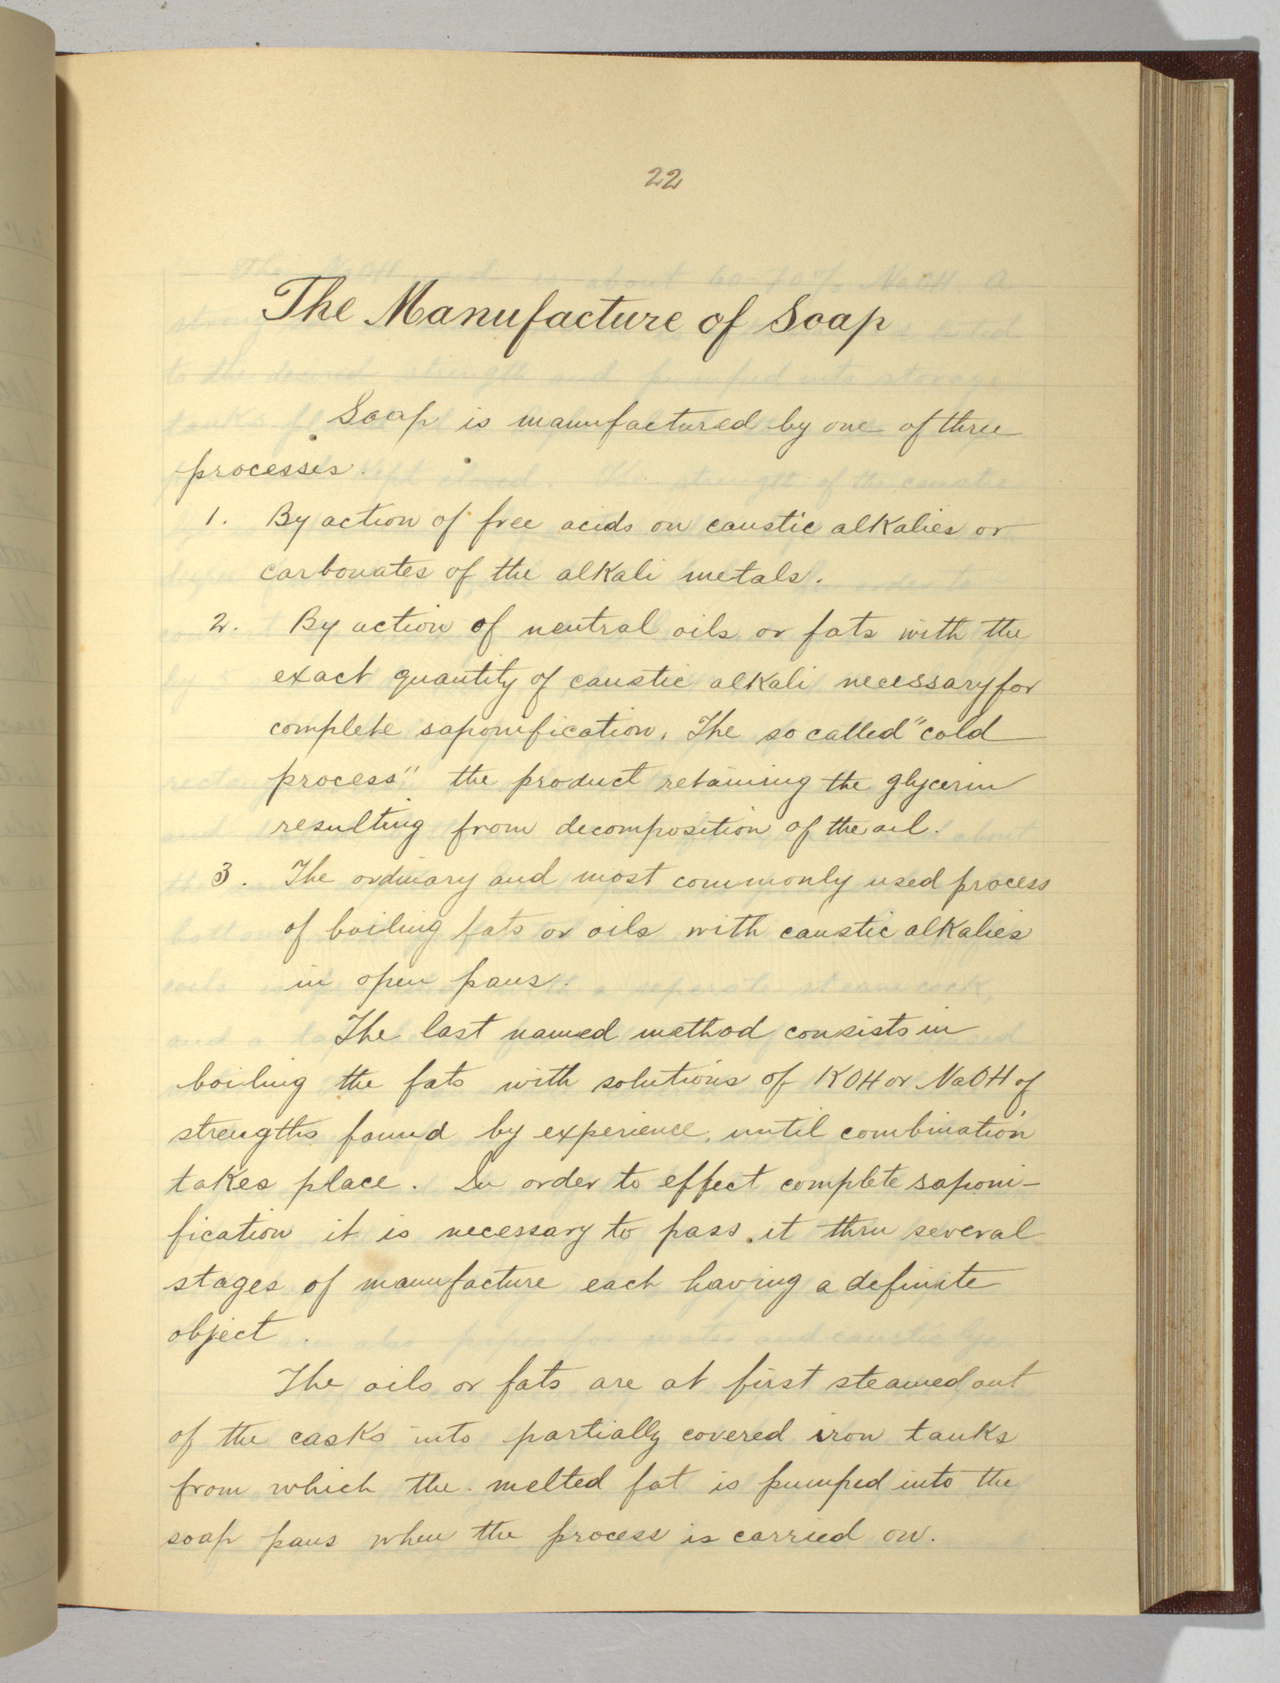 22
The Manufacture of Soap
Soap is manufactured by one of three
processes.
1. By action of free acids on caustic alkalies or
carbonates of the alkali metals.
2. By action of neutral oils or fats with the
exact quantity of caustic alkali necessary for
complete saponification. The so called "cold
process" the product retaining the glycerin
resulting from decomposition of the oil.
3. The ordinary and most commonly used process
of boiling fats or oils with caustic alkalies
in open pans.
The last named method consists in
boiling the fats with solutions of KOH or NaOH of
strengths found by experience, until combination
takes place. In order to effect complete saponi-
fication it is necessary to pass it thru several
stages of manufacture each having a definite
object.
The oils or fats are at first steamed out
of the casks into partially covered iron tanks
from which the melted fat is pumped into the
soap pans when the process is carried on.